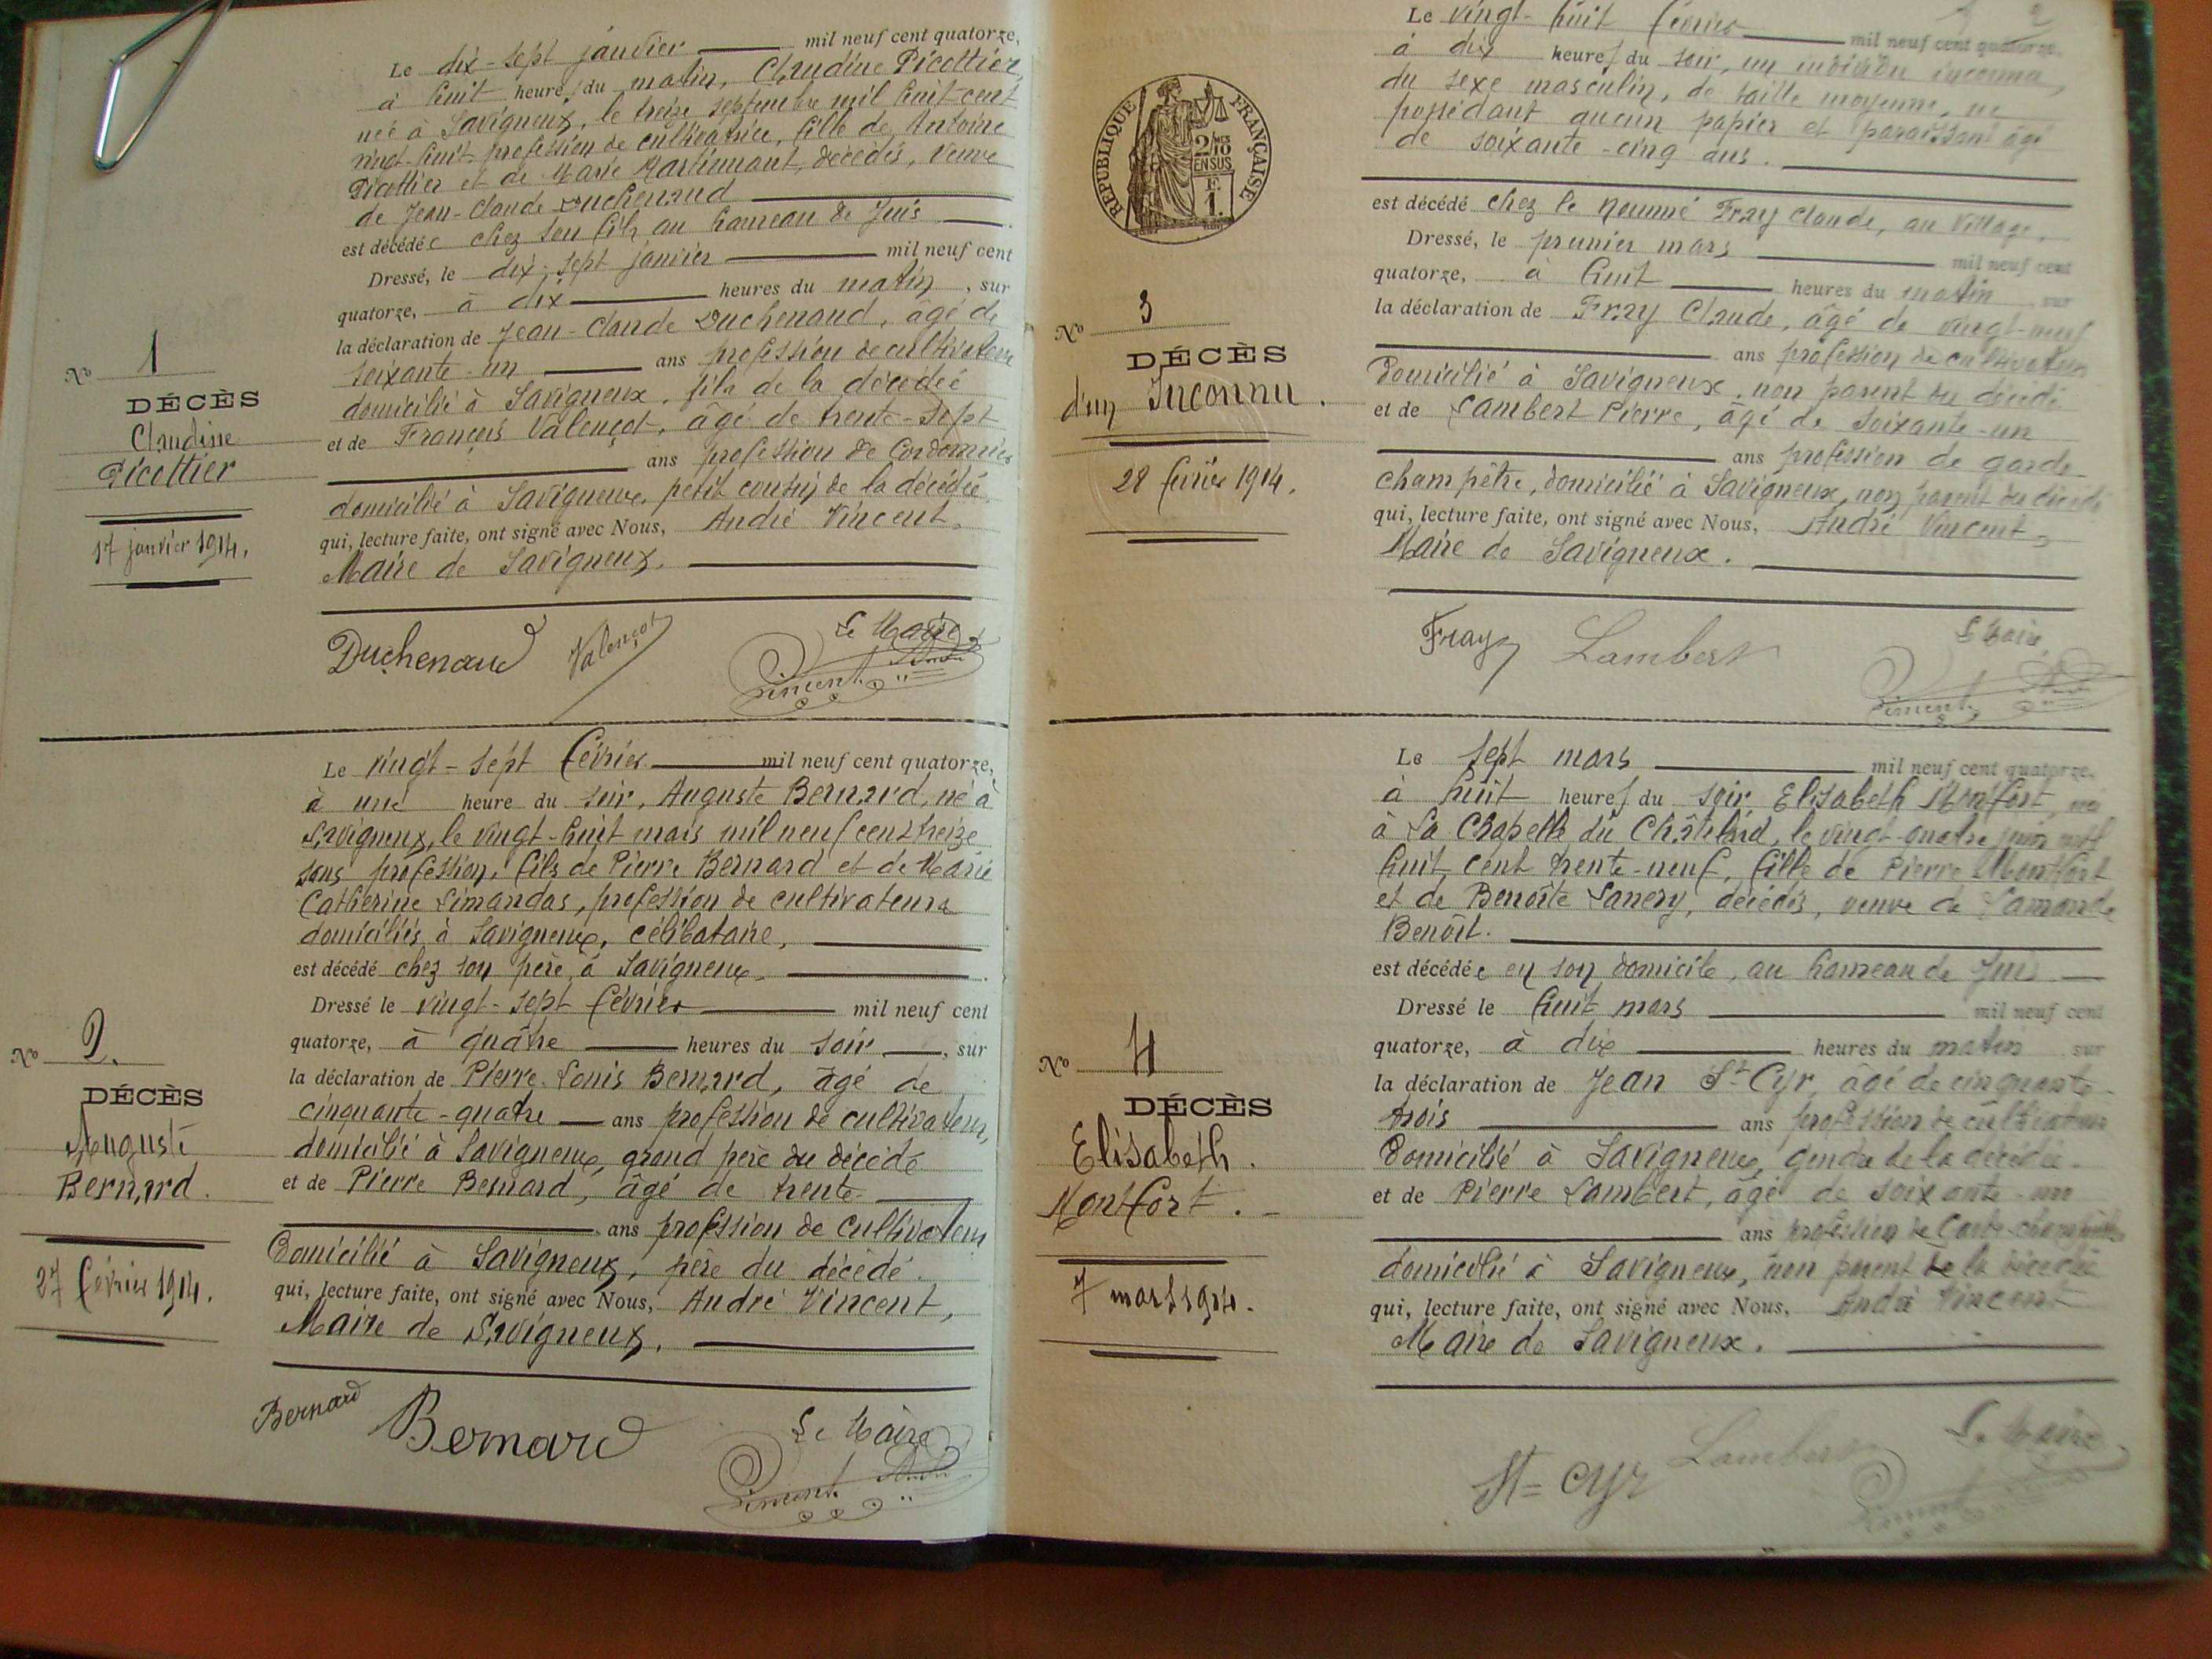 Le dix-sept janvier mil neuf cent quatorze,
à huit heures du matin, Claudine Picottier,
née à Savigneux, le treize septembre mil huit cent
vingt-huit profession de cultivatrice, fille de Antoine
Picottier et de Marie Martinnant, décédés, veuve
de Jean-Claude Duchenaud
est décédée chez son fils au hameau de Juis
Dressé, le dix-sept janvier mil neuf cent
quatorze, à dix heures du matin, sur
la déclaration de Jean-Claude Duchenaud, âgé de
soixante-un ans profession de cultivateur
domicilié à Savigneux, fils de la décédée
et de François Valençot, âgé de trente-sept
ans profession de Cordonnier
domicilié à Savigneux, petit cousin de la décédée
qui, lecture faite, ont signé avec Nous, André Vincent,
Maire de Savigneux.
No 1
DÉCÈS
Claudine
Picottier
17 janvier 1914.
Duchenaud Valençot Le Maire
Vincent André
Le vingt-sept février mil neuf cent quatorze,
à une heure du soir, Auguste Bernard, né à
Savigneux, le vingt-huit mars mil neuf cent treize
sans profession, fils de Pierre Bernard et de Marie
Catherine Limandas, profession de cultivateurs
domiciliés à Savigneux, célibataire,
est décédé chez son père, à Savigneux.
Dressé le vingt-sept février mil neuf cent
quatorze, à quatre heures du soir, sur
la déclaration de Pierre-Louis Bernard, âgé de
cinquante-quatre ans profession de cultivateur,
domicilié à Savigneux, grand père du décédé
et de Pierre Bernard, âgé de trente
ans profession de cultivateur
domicilié à Savigneux, père du décédé.
qui, lecture faite, ont signé avec Nous, André Vincent,
Maire de Savigneux.
No 2.
DÉCÈS
Auguste
Bernard.
27 février 1914.
Bernard Bernard Le Maire
Vincent André
2
Le vingt-huit février mil neuf cent quatorze.
à dix heures du soir, un individu inconnu,
du sexe masculin, de taille moyenne, ne
possédant aucun papier et paraissant âgé
de soixante-cinq ans.
est décédé chez le nommé Fray Claude, au Village.
Dressé, le premier mars mil neuf cent
quatorze, à huit heures du matin sur
la déclaration de Fray Claude, âgé de vingt-neuf
ans profession de cultivateur
domicilié à Savigneux, non parent du décédé
et de Lambert Pierre, âgé de soixante-un
ans profession de garde
champêtre, domicilié à Savigneux, non parent du décédé
qui, lecture faite, ont signé avec Nous, André Vincent,
Maire de Savigneux.
RÉPUBLIQUE FRANÇAISE
2/10
EN SUS
F.
1.
No 3
DÉCÈS
d'un Inconnu.
28 février 1914.
Fray Lambert Le Maire
Vincent André
Le sept mars mil neuf cent quatorze,
à huit heures du soir Elisabeth Montfort, née
à La Chapelle du Châtelard, le vingt-quatre juin mil
huit cent trente-neuf, fille de Pierre Montfort
et de Benoîte Lanery, décédés, veuve de
Benoît.
est décédée en son domicile, au hameau de Juis
Dressé le huit mars mil neuf cent
quatorze, à dix heures du matin sur
la déclaration de Jean St Cyr, âgé de cinquante
trois ans profession de cultivateur
domicilié à Savigneux, gendre de la décédée.
et de Pierre Lambert, âgé de soixante-un
ans profession de Garde-champêtre
domicilié à Savigneux, non parent de la décédée
qui, lecture faite, ont signé avec Nous, André Vincent
Maire de Savigneux.
No 4
DÉCÈS
Elisabeth.
Montfort.
7 mars 1914.
St Cyr Lambert Le Maire
Vincent